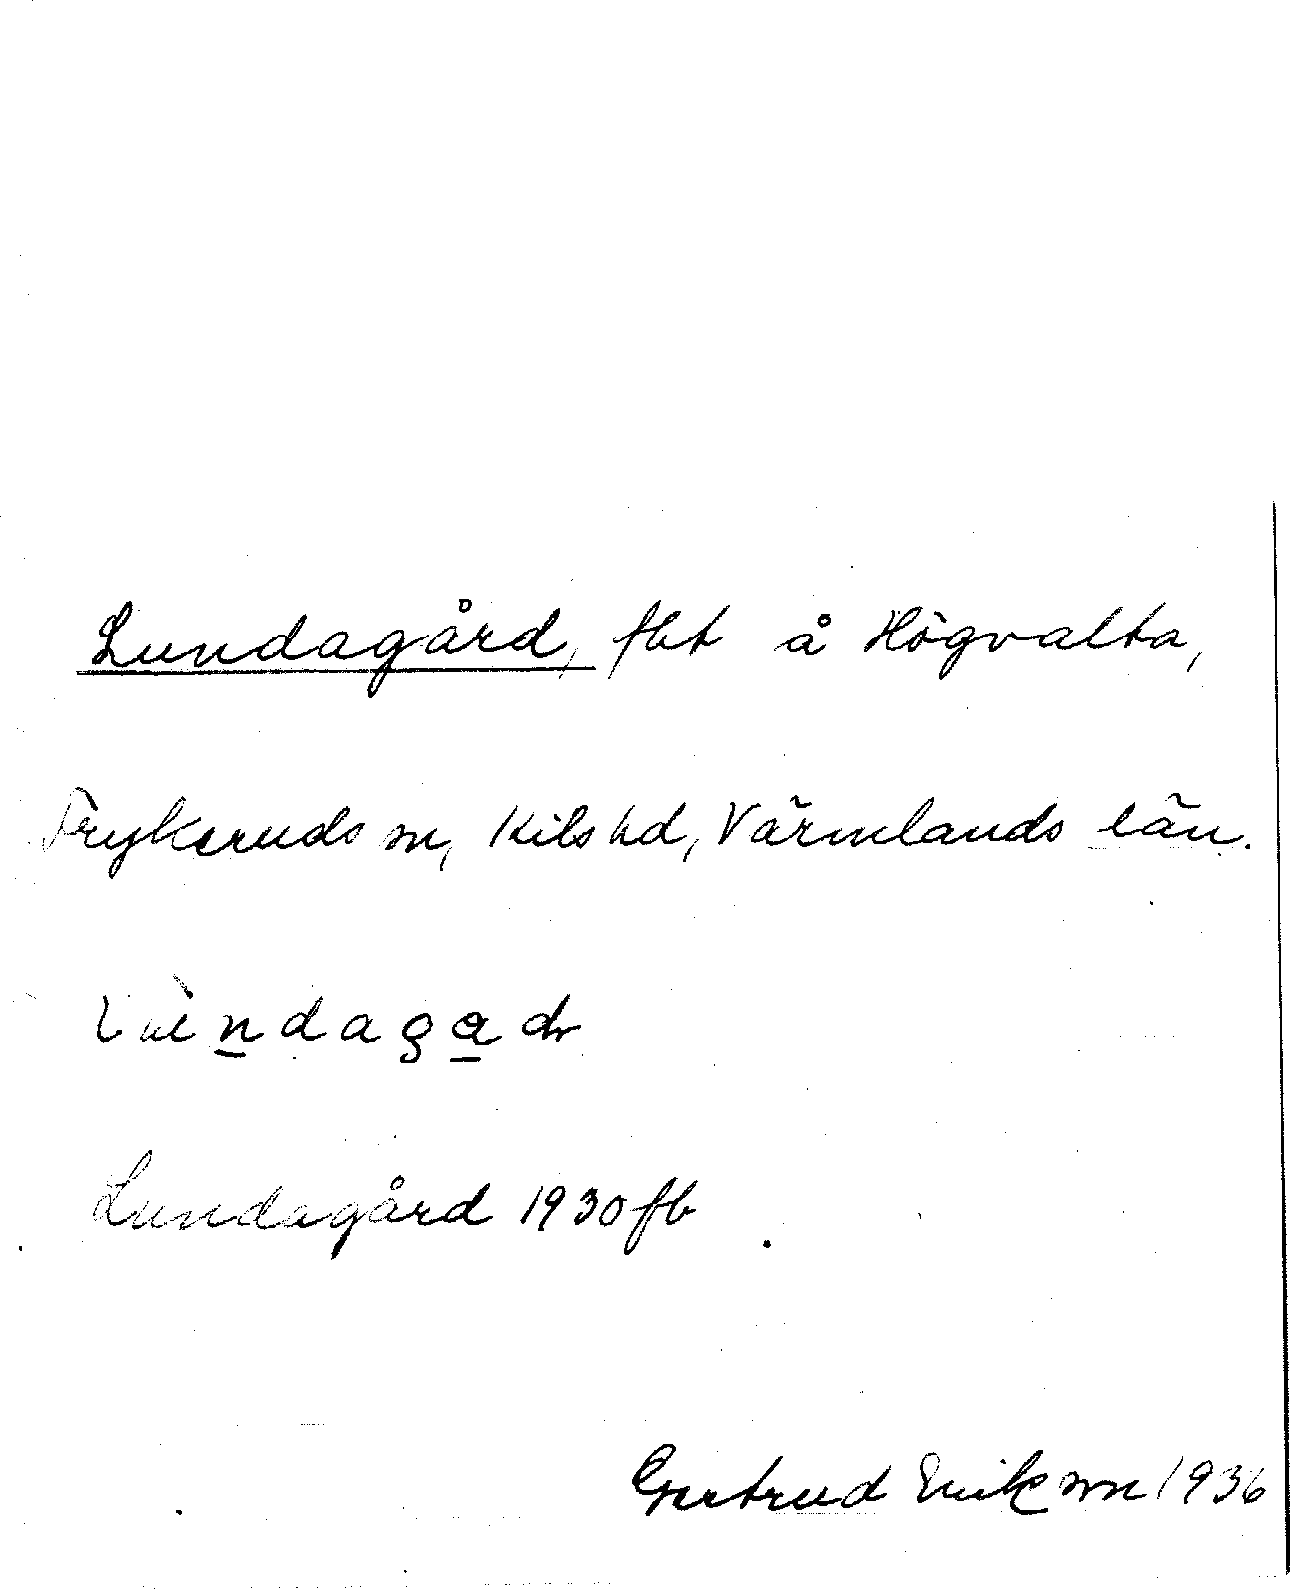 Lundagård, fbt å Högvalta,
Frykeruds sn, Kils hd, Värmlands län.
Lundagård 1930 fb
Gertrud Erikson 1936